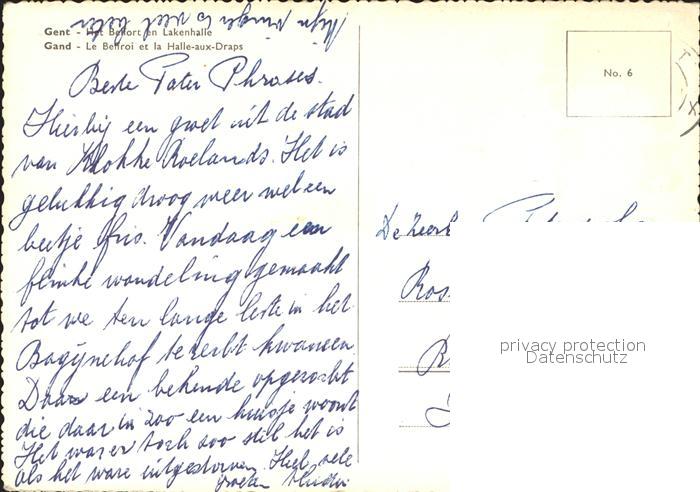 Mijn vinger is veel beter
Gent - Het Belfort en Lakenhalle
Gand - Le Beffroi et la Halle-aux-Draps
Beste Pater
Hierbij een groet uit de stad
van Klokke Roelands. Het is
gelukkig droog weer wel een
beetje fris. Vandaag een
flinke wandeling gemaakt
tot we ten lange leste in het
Bagijnehof terecht kwamen
Daar een bekende opgezocht
die daar in zoo een huisje woont
Het was er toch zoo stil het is
als het ware uitgestorven. Heel vele
groeten
No. 6
De Zeer
Ros
privacy protection
Datenschutz